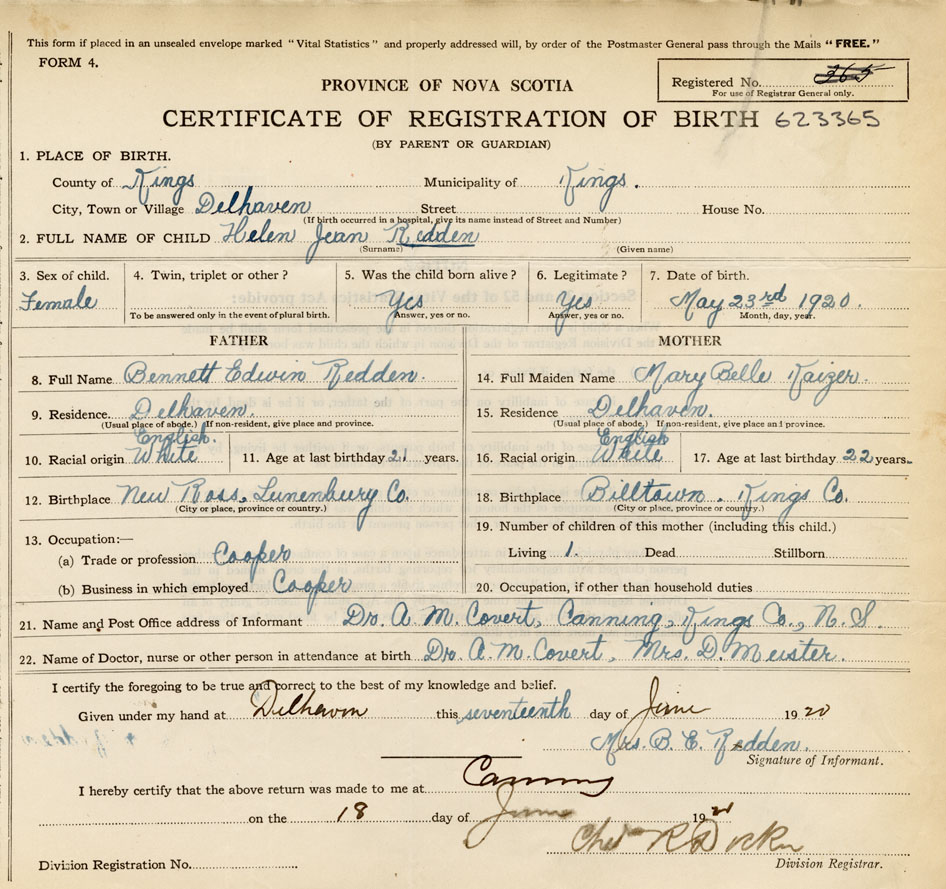 This form if placed in an unsealed envelope marked "Vital Statistics" and properly addressed will, by order of the Postmaster General pass through the Mails "FREE."
FORM 4.
PROVINCE OF NOVA SCOTIA
Registered No. 365
For use of Registrar General only.
CERTIFICATE OF REGISTRATION OF BIRTH 623365
(BY PARENT OR GUARDIAN)
1. PLACE OF BIRTH.
County of Kings Municipality of Kings.
City, Town or Village Delhaven Street House No.
(If birth occurred in a hospital, give its name instead of Street and Number)
2. FULL NAME OF CHILD Helen Jean Redden
(Surname) (Given name)
3. Sex of child. 4. Twin, triplet or other? 5. Was the child born alive? 6. Legitimate? 7. Date of birth.
Female Yes Yes May 23rd 1920.
To be answered only in the event of plural birth. Answer, yes or no. Answer, yes or no. Month, day, year.
FATHER MOTHER
8. Full Name Bennett Edwin Redden. 14. Full Maiden Name Mary Belle Kaizer.
9. Residence. Delhaven. 15. Residence Delhaven.
(Usual place of abode.) If non-resident, give place and province. (Usual place of abode.) If non-resident, give place and province.
English. English
10. Racial origin White 11. Age at last birthday 21 years. 16. Racial origin White 17. Age at last birthday 22 years.
12. Birthplace New Ross, Lunenburg Co. 18. Birthplace Billtown. Kings Co.
(City or place, province or country.) (City or place, province or country.)
19. Number of children of this mother (including this child.)
13. Occupation:—
(a) Trade or profession Cooper Living 1. Dead Stillborn
(b) Business in which employed Cooper 20. Occupation, if other than household duties
21. Name and Post Office address of Informant Dr. A. M. Covert, Canning, Kings Co., N. S.
22. Name of Doctor, nurse or other person in attendance at birth Dr. A. M. Covert, Mrs. D. Meister.
I certify the foregoing to be true and correct to the best of my knowledge and belief.
Given under my hand at Delhaven this seventeenth day of June 1920
Mrs. B. E. Redden.
Signature of Informant.
I hereby certify that the above return was made to me at Canning
on the 18 day of June 19
Division Registration No. Division Registrar.